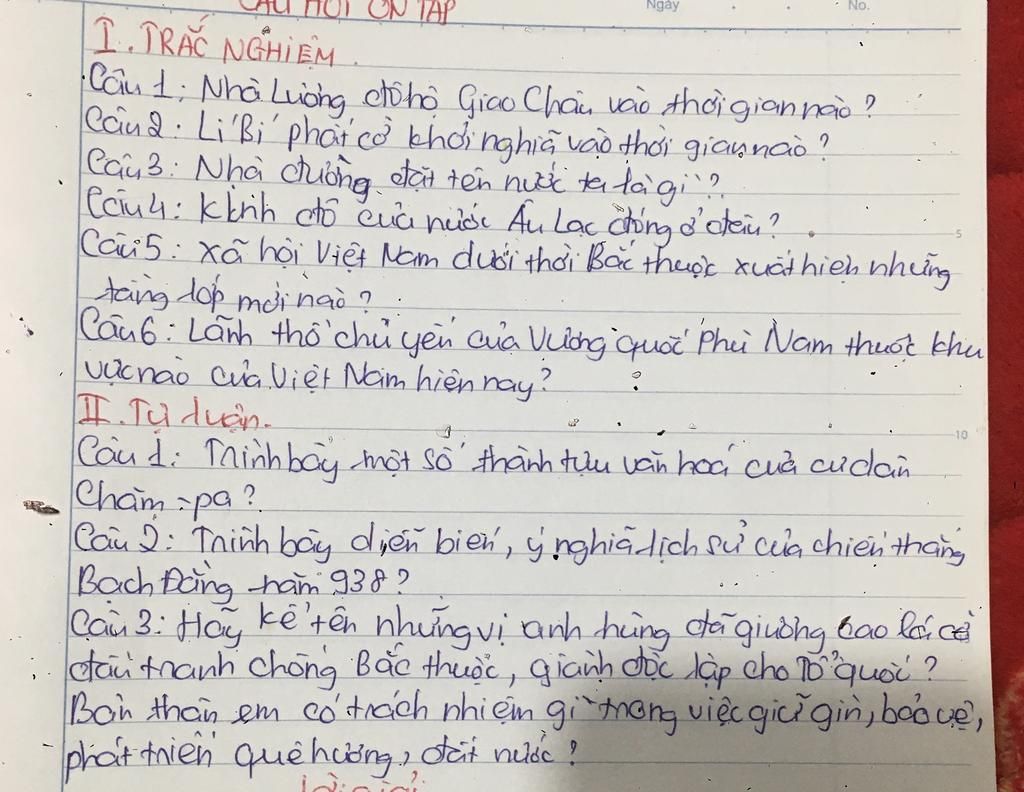 CÂU HỎI ÔN TẬP
Ngày . . No.
I. TRẮC NGHIỆM.
Câu 1: Nhà Lương đô hộ Giao Châu vào thời gian nào?
Câu 2: Lí Bí phất cờ khởi nghĩa vào thời gian nào?
Câu 3: Nhà đường đặt tên nước ta là gì?
Câu 4: Kinh đô của nước Âu Lạc đóng ở đâu?
5
Câu 5: Xã hội Việt Nam dưới thời Bắc thuộc xuất hiện những
tầng lớp mới nào?
Câu 6: Lãnh thổ chủ yếu của Vương quốc Phù Nam thuộc khu
vực nào của Việt Nam hiện nay?
II. Tự luận.
10
Câu 1: Trình bày một số thành tựu văn hoá của cư dân
Chăm-pa?
Câu 2: Trình bày diễn biến, ý nghĩa lịch sử của chiến thắng
Bạch Đằng năm 938?
Câu 3: Hãy kể tên những vị anh hùng đã giương cao lá cờ
đấu tranh chống Bắc thuộc, giành độc lập cho Tổ quốc?
Bản thân em có trách nhiệm gì trong việc giữ gìn, bảo vệ,
phát triển quê hương, đất nước?
Lời giải